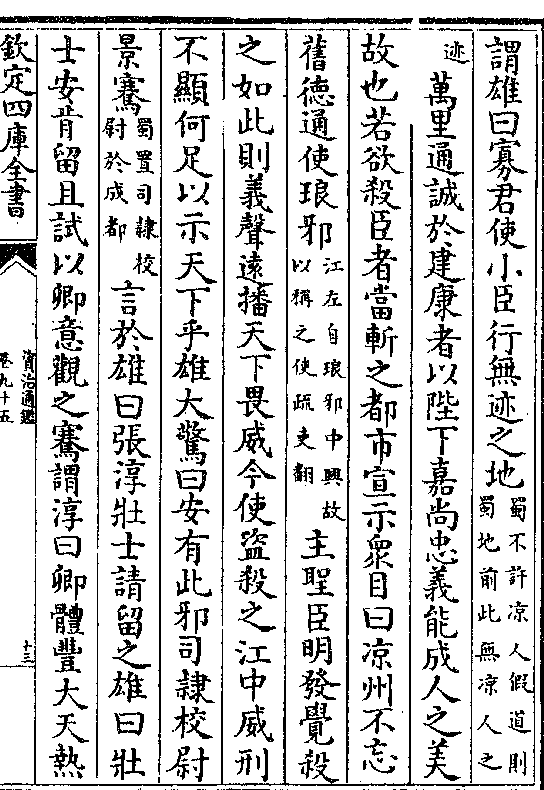 謂雄曰寡君使小臣行無迹之地蜀不許凉人假道則蜀地前此無凉人之
迹萬里通誠於建康者以陛下嘉尚忠義能成人之美
故也若欲殺臣者當斬之都市宣示衆目曰凉州不忘
舊德通使琅邪江左自琅邪中興故以稱之使疏吏翻主聖臣明發覺殺
之如此則義聲遠播天下畏威今使盜殺之江中威刑
不顯何足以示天下乎雄大驚曰安有此邪司隸校尉
景騫蜀置司隸校尉於成都言於雄曰張淳壯士請留之雄曰壯
士安肯留且試以卿意觀之騫謂淳曰卿體豐大天熱
欽定四庫全書
資治通鑑
卷九十五
十三